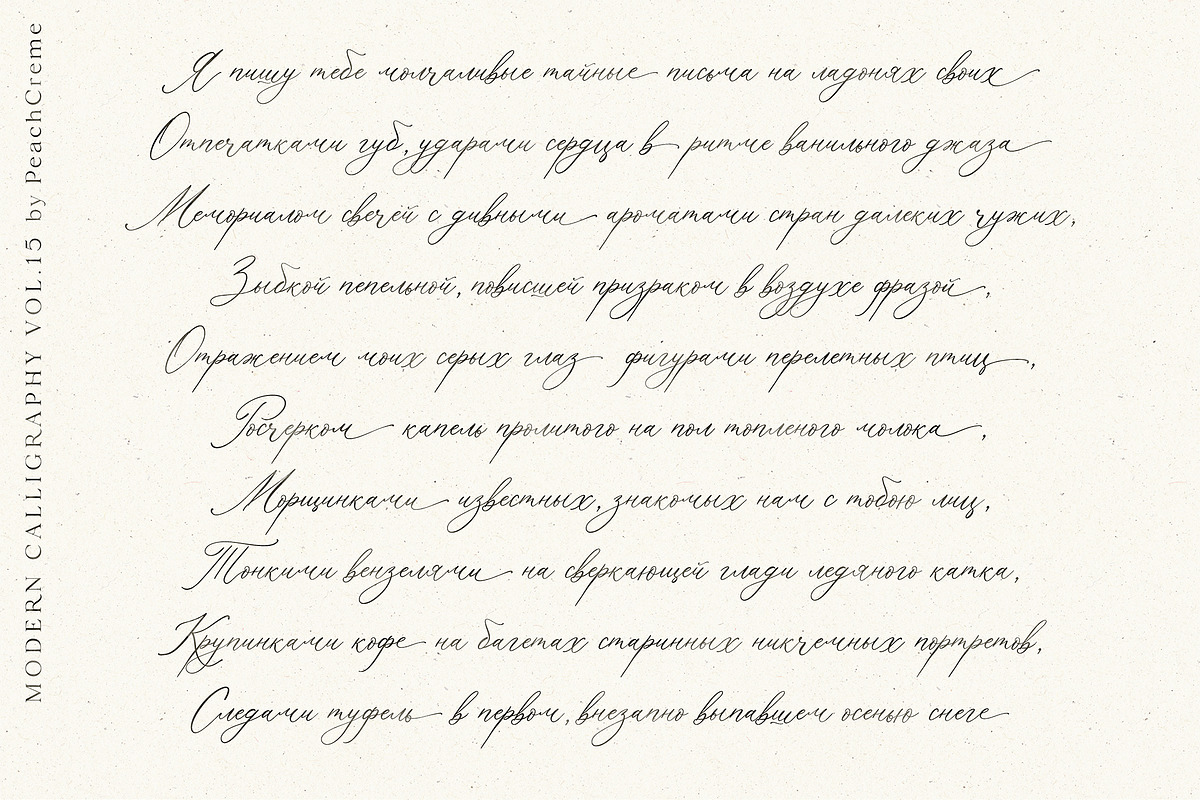 MODERN CALLIGRAPHY VOL.15 by PeachCreme
Я пишу тебе молчаливые тайные письма на ладонях своих
Отпечатками губ, ударами сердца в ритме ванильного джаза
Мемориалом свечей с дивными ароматами стран далеких чужих,
Зыбкой пепельной, повисшей призраком в воздухе фразой,
Отражением моих серых глаз фигурами перелетных птиц,
Росчерком капель пролитого на пол топленого молока,
Морщинками известных, знакомых нам с тобою лиц,
Тонкими вензелями на сверкающей глади ледяного катка,
Крупинками кофе на багетах старинных никчемных портретов,
Следами туфель в первом, внезапно выпавшем осенью снеге